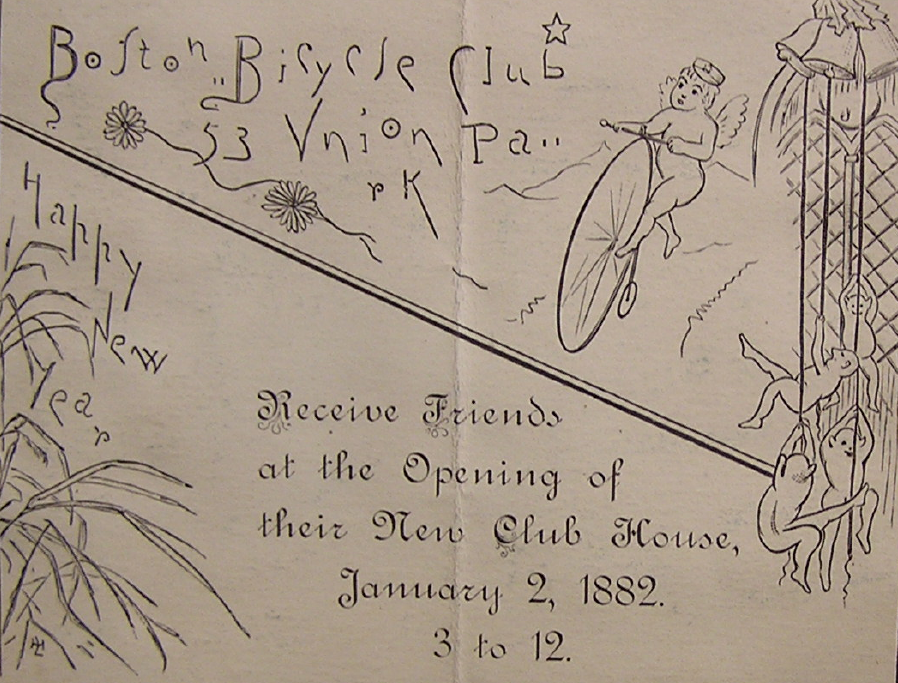 Boston Bicycle Club
53 Vnion Pa
rk
Happy
New
Yea
r
Receive Friends
at the Opening of
their New Club House,
January 2, 1882.
3 to 12.